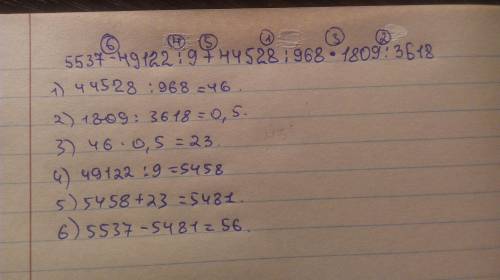 ⑥ ④ ⑤ ① ③ ②
5537-49122:9+44528:968•1809:3618
1) 44528:968=46.
2) 1809:3618=0,5.
3) 46·0,5=23.
4) 49122:9=5458
5) 5458+23=5481.
6) 5537-5481=56.